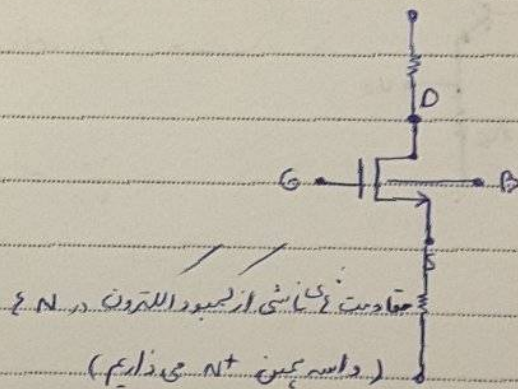 D
G
B
S
مقاومت های ناشی از کمبود الکترون در N
(واسه همین N+ می ذاریم)